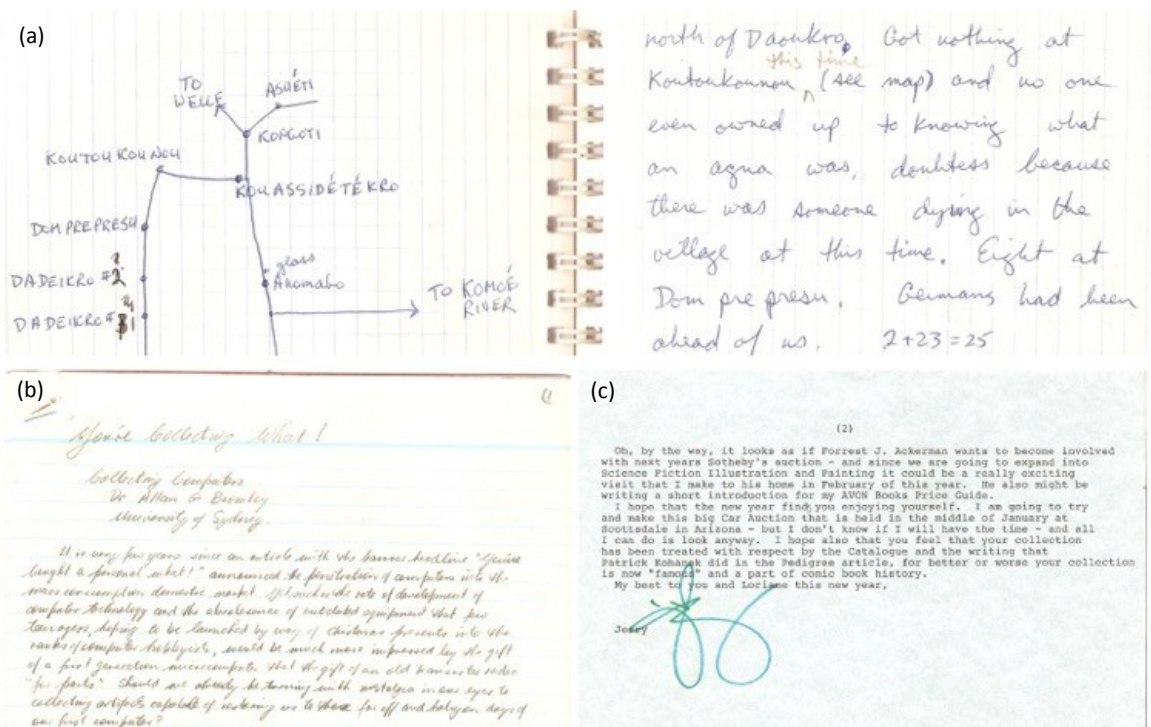 (a)
TO
WELLE
ASUÉTI
KOPGOTI
KOUTOUKOUNOU
KOUASSIDÉTÉKRO
DOMPREPRESU
DADEIKRO #2
DADEIKRO #1
glass
Anomabo
TO KOMOÉ
RIVER
north of Daoukro. Got nothing at
this time
Koutoukounou (see map) and no one
even owned up to knowing what
an agua was, doubtless because
there was someone dying in the
village at this time. Eight at
Dom pre presu. Germans had been
ahead of us. 2+23=25
(b)
"You're Collecting What!
Collecting Computers
Dr Allan G Bromley
University of Sydney.
It is very few years since an article with the banner headline "You've
bought a personal what!" announced the penetration of computers into the
mass consumption domestic market. Yet such is the rate of development of
computer technology and the obsolescence of outdated equipment that few
teenagers, hoping to be launched by way of christmas presents into the
ranks of computer hobbyists, would be much more impressed by the gift
of a first generation microcomputer that the gift of an old transistor radio
"for parts". Should we already be turning with nostalgia in our eyes to
collecting artifacts capable of restoring us to those far off and halcyon days of
our first computer?
(c)
(2)
Oh, by the way, it looks as if Forrest J. Ackerman wants to become involved
with next years Sotheby's auction - and since we are going to expand into
Science Fiction Illustration and Painting it could be a really exciting
visit that I make to his home in February of this year. He also might be
writing a short introduction for my AVON Books Price Guide.
I hope that the new year find you enjoying yourself. I am going to try
and make this big Car Auction that is held in the middle of January at
Scottsdale in Arizona - but I don't know if I will have the time - and all
I can do is look anyway. I hope also that you feel that your collection
has been treated with respect by the Catalogue and the writing that
Patrick Kohanek did in the Pedigree article, for better or worse your collection
is now "famous" and a part of comic book history.
My best to you and Loriane this new year,
Jerry